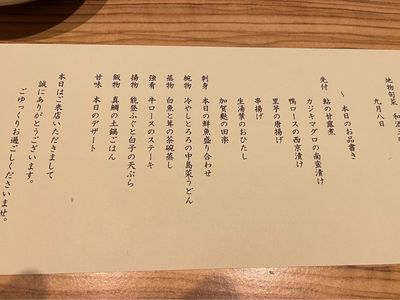 地物旬菜 和酒三
九月八日
〜 本日のお品書き
先付 鮎の甘露煮
カジキマグロの南蛮漬け
鴨ロースの西京漬け
里芋の唐揚げ
串揚げ
生湯葉のおひたし
加賀麩の田楽
刺身 本日の鮮魚盛り合わせ
椀物 冷やしとろろの中島菜うどん
蒸物 白魚と茸の茶碗蒸し
強肴 牛ロースのステーキ
揚物 能登ふぐと白子の天ぷら
飯物 真鯛の土鍋ごはん
甘味 本日のデザート
本日はご来店いただきまして
誠にありがとうございます。
ごゆっくりお過ごしくださいませ。